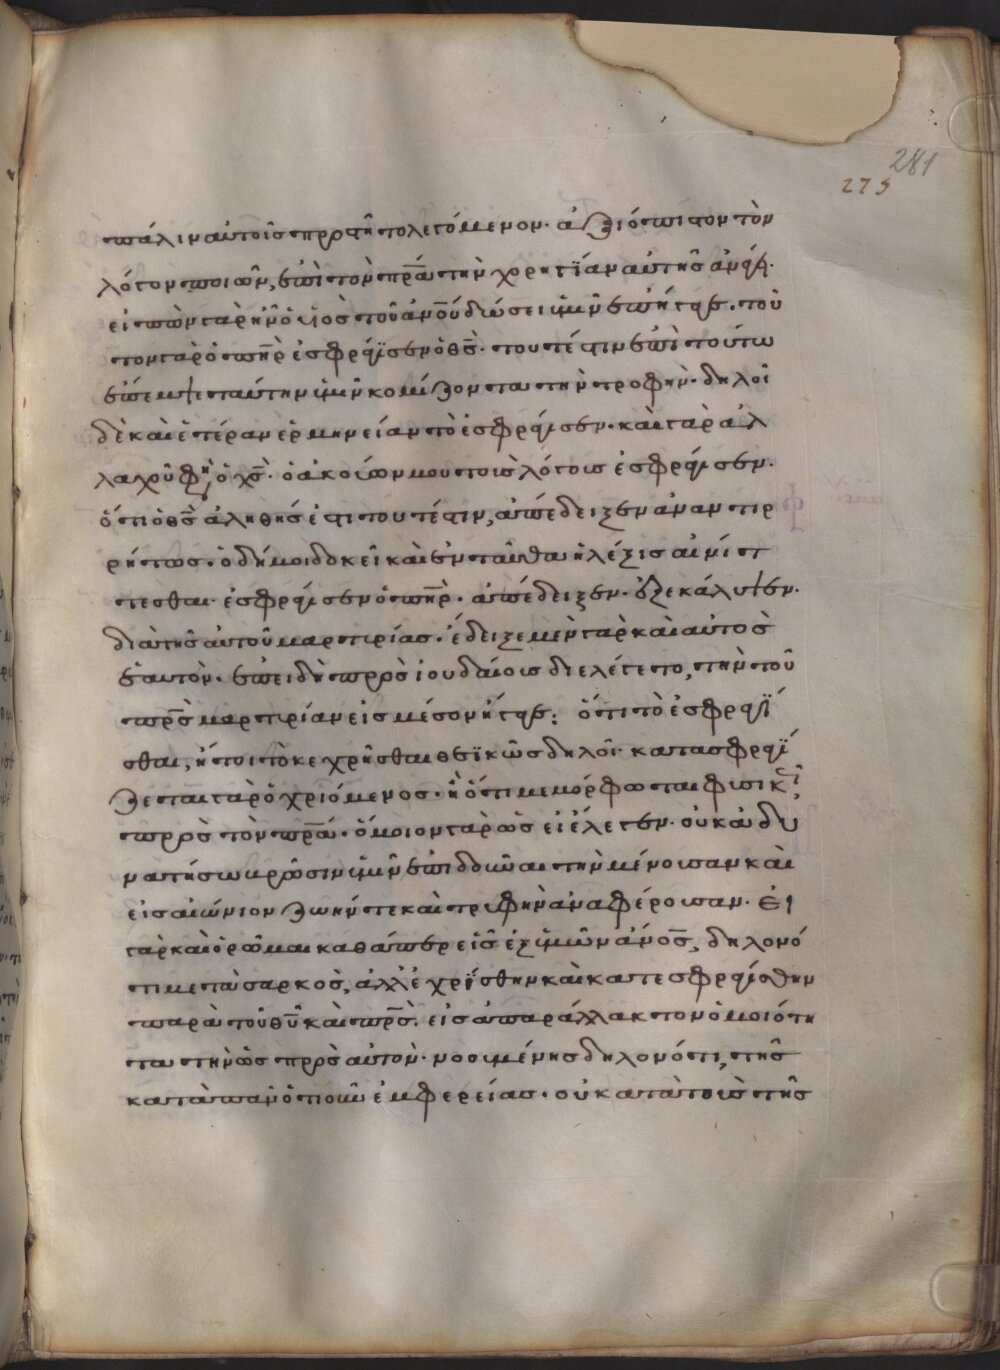 πάλιν αὐτοῖς προστῆ τὸ λεγόμενον· ἀξιόπιστον τὸν
λόγον ποιῶν, ἐπὶ τὸν πρ̅α τὴν χορηγίαν αὐτῆς ἀνῆψε.
εἰπὼν γὰρ ἣν ὁ υἱὸς τοῦ ἀν̅ου δώσει ὑμῖν ἐπήγαγε. τοῦ
τον γὰρ ὁ πη̅ρ ἐσφράγισεν ὁ θ̅ς· τουτέστιν ἐπὶ τούτω
ἔπεμψε ταύτην ὑμῖν κομίζοντα τὴν τροφὴν· δηλοῖ
δὲ καὶ ἑτέραν ἑρμηνείαν τὸ ἐσφράγισεν· καὶ γὰρ ἀλ
λαχοῦ φη ὁ χ̅ς· ὁ ἀκούων μου τοὺς λόγους ἐσφράγισεν.
ὅτι ὁ θ̅ς ἀληθής ἐστι τουτέστιν, ἀπέδειξεν ἀναντιρ
ρήτως· ὃ δή μοι δοκεῖ καὶ ἐνταῦθα ἡ λέξις αἰνίτ
τεσθαι· ἐσφράγισεν ὁ πη̅ρ· ἀπέδειξεν· ἐξεκάλυψεν·
διὰ τῆς αὐτοῦ μαρτυρίας· ἔδειξε μὲν γὰρ καὶ αὐτὸς
ἑαυτὸν· ἐπειδὴ πρὸς ἰουδαίους διελέγετο, τὴν τοῦ
πρ̅ς μαρτυρίαν εἰς μέσον ἤγαγε: ὅτι τὸ ἐσφραγί
σθαι, ἤτοι τὸ κεχρῆσθαι θεϊκῶς δηλοῖ· κατασφραγί
ζεται γὰρ ὁ χριόμενος· ἢ ὅτι μεμόρφωται φυσικῶς
πρὸς τὸν πρ̅α· ὅμοιον γὰρ ὡς εἰ ἔλεγεν· οὐκ ἀδυ
νατήσω βρῶσιν ὑμῖν ἐπιδοῦναι τὴν μένουσαν καὶ
εἰς αἰώνιον ζωήν τε καὶ τρυφὴν ἀναφέρουσαν· εἰ
γὰρ καὶ ὁρῶμαι καθάπερ εἷς ἐξ ὑμῶν ἄν̅ος, δηλονό
τι μετὰ σαρκὸς, ἀλλ' ἐχρίσθην καὶ κατεσφραγίσθην
παρὰ τοῦ θ̅υ καὶ πρ̅ς· εἰς ἀπαράλλακτον ὁμοιότη
τα τὴν ὡς πρὸς αὐτὸν· νοουμένης δηλονότι, τῆς
κατὰ πᾶν ὁτιοῦν ἐμφερείας· οὐ κατὰ τοὺς τῆς
281
275